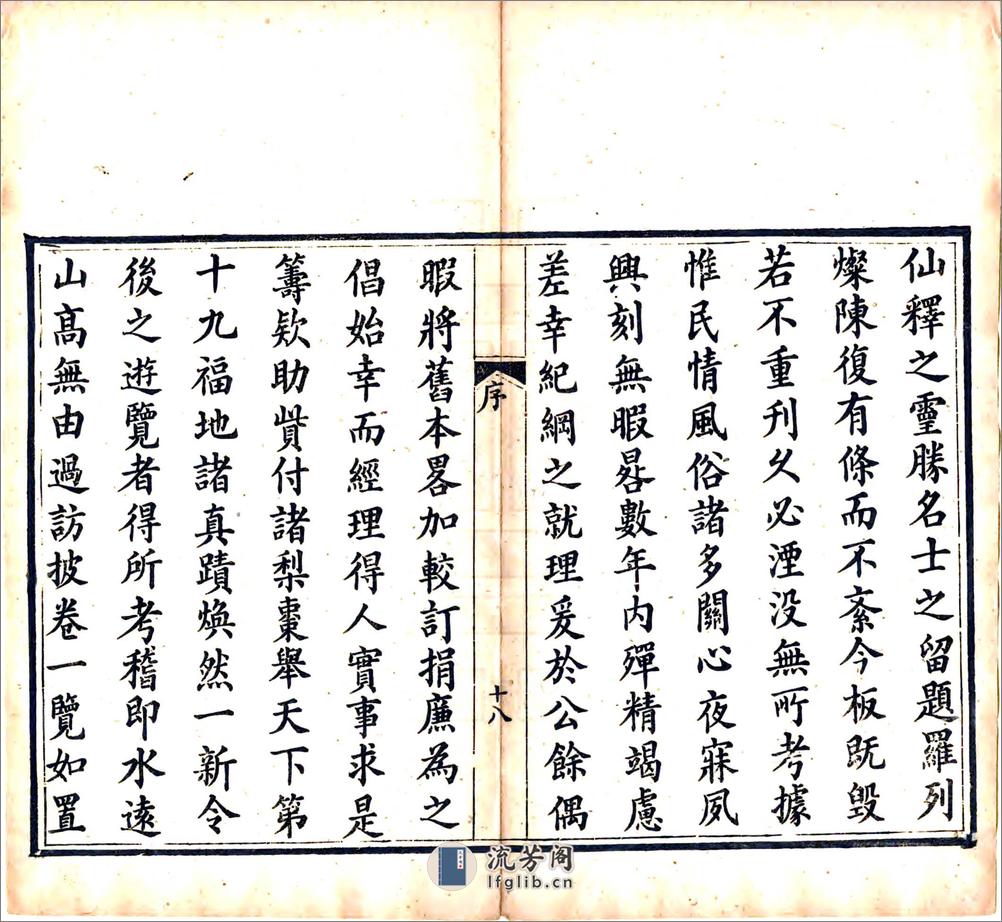 仙釋之靈勝名士之留題羅列
燦陳復有條而不紊今板既毀
若不重刊久必湮没無所考據
惟民情風俗諸多關心夜寐夙
興刻無暇晷數年内殫精竭慮
差幸紀綱之就理爰於公餘偶
序
十八
暇將舊本畧加較訂捐廉為之
倡始幸而經理得人實事求是
籌欵助貲付諸梨棗舉天下第
十九福地諸真蹟煥然一新令
後之遊覽者得所考稽即水遠
山髙無由過訪披卷一覽如置
流芳阁
lfglib.cn